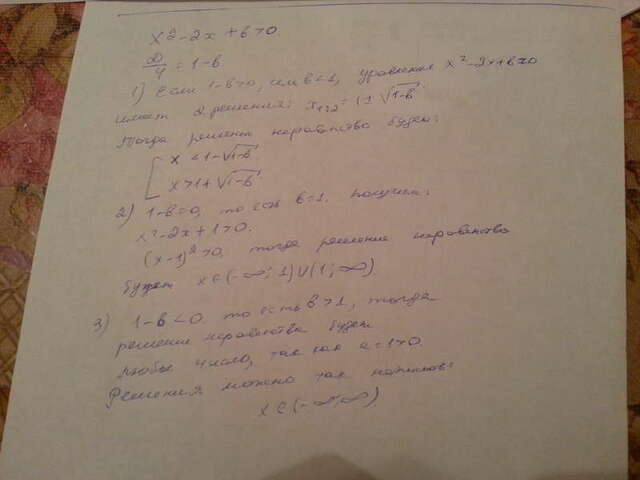 x²-2x+b>0
D/4 = 1-b
1) Если 1-b>0, b<1, уравнение x²-2x+b=0
имеет 2 решения: x₁,₂=1±√1-b
Тогда решение неравенства будет:
x < 1-√1-b
x>1+√1-b
2) 1-b=0, то есть b=1. получим:
x²-2x+1>0.
(x-1)²>0, тогда решение неравенства
будет x∈(-∞;1)∪(1;∞).
3) 1-b<0. то есть b>1, тогда
решение неравенства будет
любое число, так как a=1>0.
Решения можно так
x∈(-∞;∞)